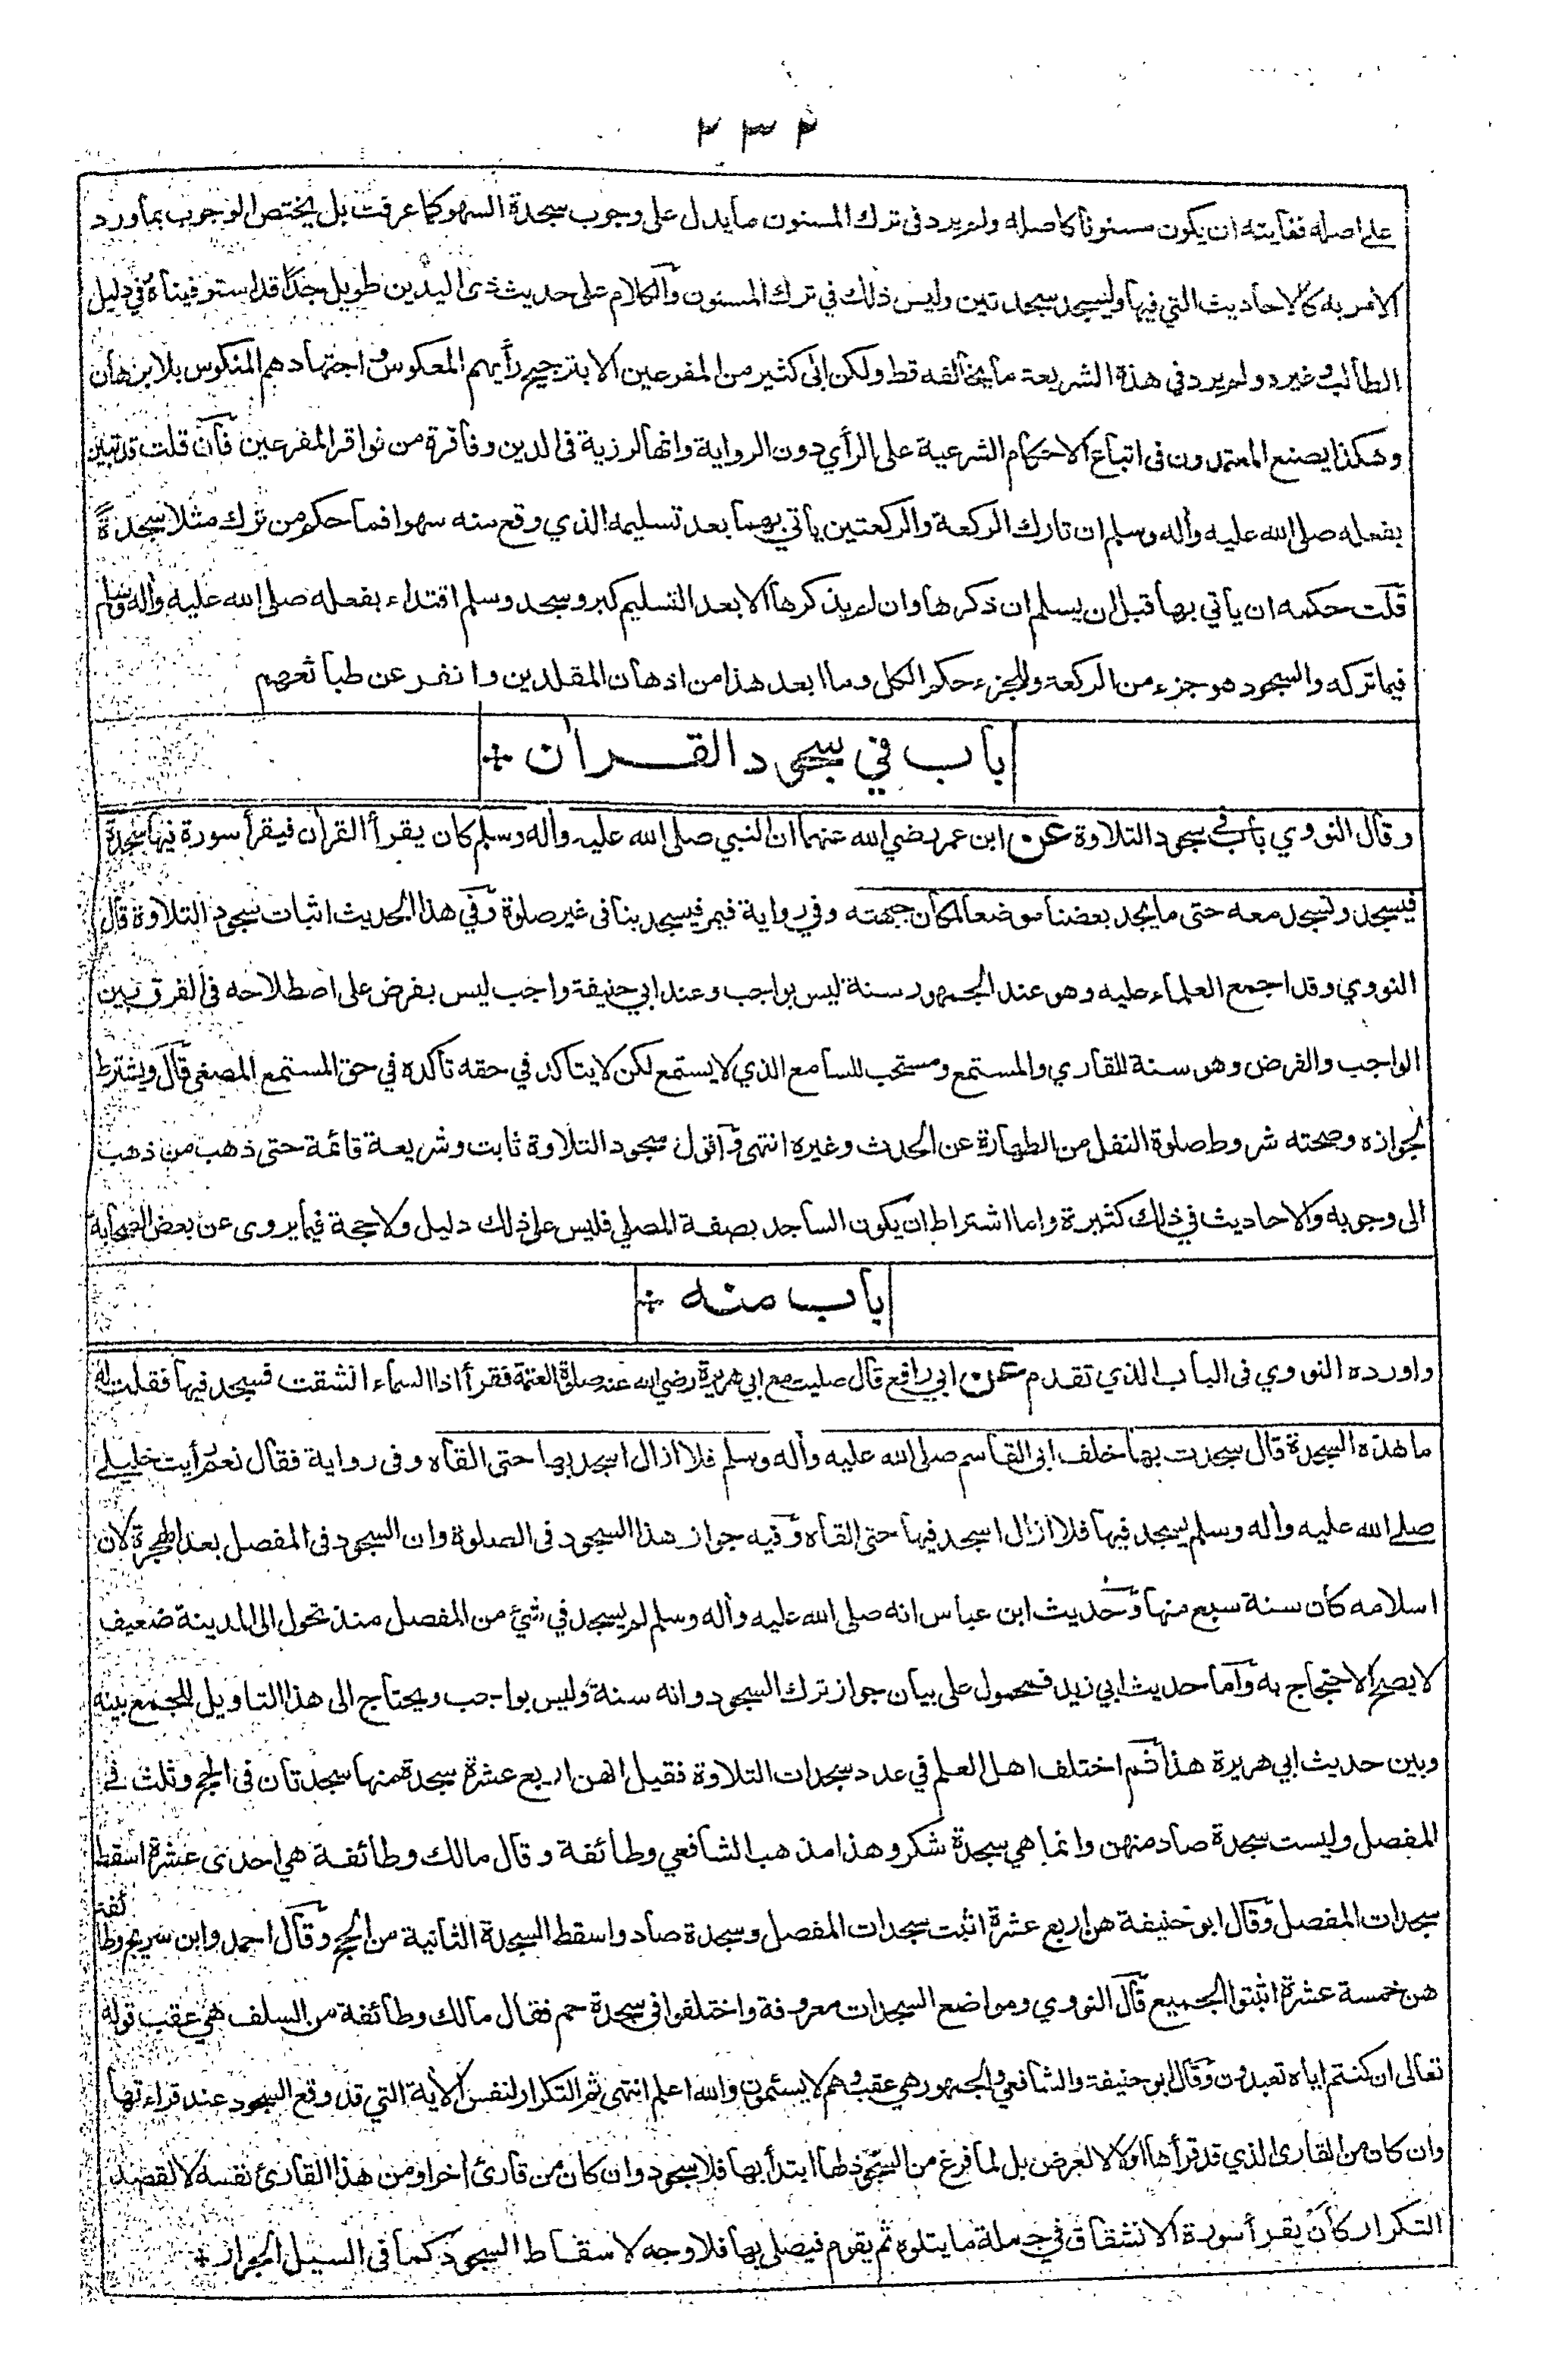 ٢٣٢
على اصله فغايته ان يكون مسنونا كاصله ولم يرد في ترك المسنون ما يدل على وجوب سجدة السهو كما عرفت بل يختص الوجوب بما ورد
الامر به كالاحاديث التي فيها وليسجد سجدتين وليس ذلك في ترك المسنون والكلام على حديث ذى اليدين طويل جدا قد استوفيناه في دليل
الطالب وغيره ولم يرد في هذه الشريعة ما يخالفه قط ولكن ابى كثير من المفرعين الا بترجيح رأيهم المعكوس واجتهادهم المنكوس بلا برهان
وهكذا يصنع المعتمدون في اتباع الاحكام الشرعية على الرأي دون الرواية وانها لرزية في الدين وفاقرة من فواقر المفرعين فان قلت قد تبين
بفعله صلى الله عليه وأله وسلم ان تارك الركعة والركعتين يأتي بهما بعد تسليمه الذي وقع منه سهوا فما حكم من ترك مثلا سجدة
قلت حكمه ان يأتي بها قبل ان يسلم ان ذكرها وان لم يذكرها الا بعد التسليم كبر وسجد وسلم اقتداء بفعله صلى الله عليه وأله وسلم
فيما تركه والسجود هو جزء من الركعة وللجزء حكم الكل وما ابعد هذا من اذهان المقلدين وانفر عن طبائعهم
باب في سجود القرأن +
وقال النووي باب في سجود التلاوة عن ابن عمر رضي الله عنهما ان النبي صلى الله عليه وأله وسلم كان يقرأ القرأن فيقرأ سورة فيها سجدة
فيسجد ونسجد معه حتى ما يجد بعضنا موضعا لمكان جبهته وفي رواية فيمر فيسجد بنا في غير صلوة وفي هذا الحديث اثبات سجود التلاوة قال
النووي وقد اجمع العلماء عليه وهو عند الجمهور سنة ليس بواجب وعند ابي حنيفة واجب ليس بفرض على اصطلاحه في الفرق بين
الواجب والفرض وهو سنة للقاري والمستمع ومستحب للسامع الذي لا يستمع لكن لا يتأكد في حقه تأكده في حق المستمع المصغي قال ويشترط
لجوازه وصحته شروط صلوة النفل من الطهارة عن الحدث وغيره انتهى واقول سجود التلاوة ثابت وشريعة قائمة حتى ذهب من ذهب
الى وجوبه والاحاديث في ذلك كثيرة واما اشتراط ان يكون الساجد بصفة المصلي فليس على ذلك دليل ولا حجة فيما يروى عن بعض الصحابة
باب منه +
واورده النووي في الباب الذي تقدم عن ابي رافع قال صليت مع ابي هريرة رضي الله عنه صلوة العتمة فقرأ اذا السماء انشقت فسجد فيها فقلت له
ما هذه السجدة قال سجدت بها خلف ابي القاسم صلى الله عليه وأله وسلم فلا ازال اسجد بها حتى القاه وفي رواية فقال نعم رأيت خليلي
صلى الله عليه وأله وسلم يسجد فيها فلا ازال اسجد فيها حتى القاه وفيه جواز هذا السجود في الصلوة وان السجود في المفصل بعد الهجرة لان
اسلامه كان سنة سبع منها وحديث ابن عباس انه صلى الله عليه وأله وسلم لم يسجد في شئ من المفصل منذ تحول الى المدينة ضعيف
لا يصح الاحتجاج به واما حديث ابي زيد فمحمول على بيان جواز ترك السجود وانه سنة وليس بواجب ويحتاج الى هذا التاويل للجمع بينه
وبين حديث ابي هريرة هذا ثم اختلف اهل العلم في عدد سجدات التلاوة فقيل انهن اربع عشرة سجدة منها سجدتان في الحج وثلث في
المفصل وليست سجدة صاد منهن وانما هي سجدة شكر وهذا مذهب الشافعي وطائفة وقال مالك وطائفة هي احدى عشرة اسقط
سجدات المفصل وقال ابو حنيفة هن اربع عشرة اثبت سجدات المفصل وسجدة صاد واسقط السجدة الثانية من الحج وقال احمد وابن سريج وطائفة
هن خمسة عشرة اثبتوا الجميع قال النووي ومواضع السجدات معروفة واختلفوا في سجدة حم فقال مالك وطائفة من السلف هي عقب قوله
تعالى ان كنتم اياه تعبدون وقال ابو حنيفة والشافعي والجمهور هي عقب وهم لا يسئمون والله اعلم انتهى ثم التكرار لنفس الاية التي قد وقع السجود عند قراءتها
وان كان من القارئ الذي قد قرأها اولا لا لغرض بل لما فرغ من السجود لها ابتدأ بها فلا سجود وان كان من قارئ اخر او من هذا القارئ نفسه لا لقصد
التكرار كأن يقرأ سورة الانشقاق في جملة ما يتلوه ثم يقوم فيصلي بها فلا وجه لاسقاط السجود كما في السيل الجرار +